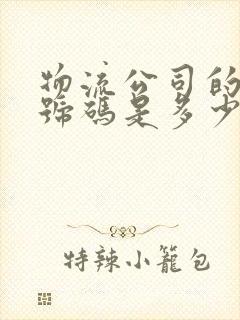 物流公司的
號碼是多少
特辣小籠包